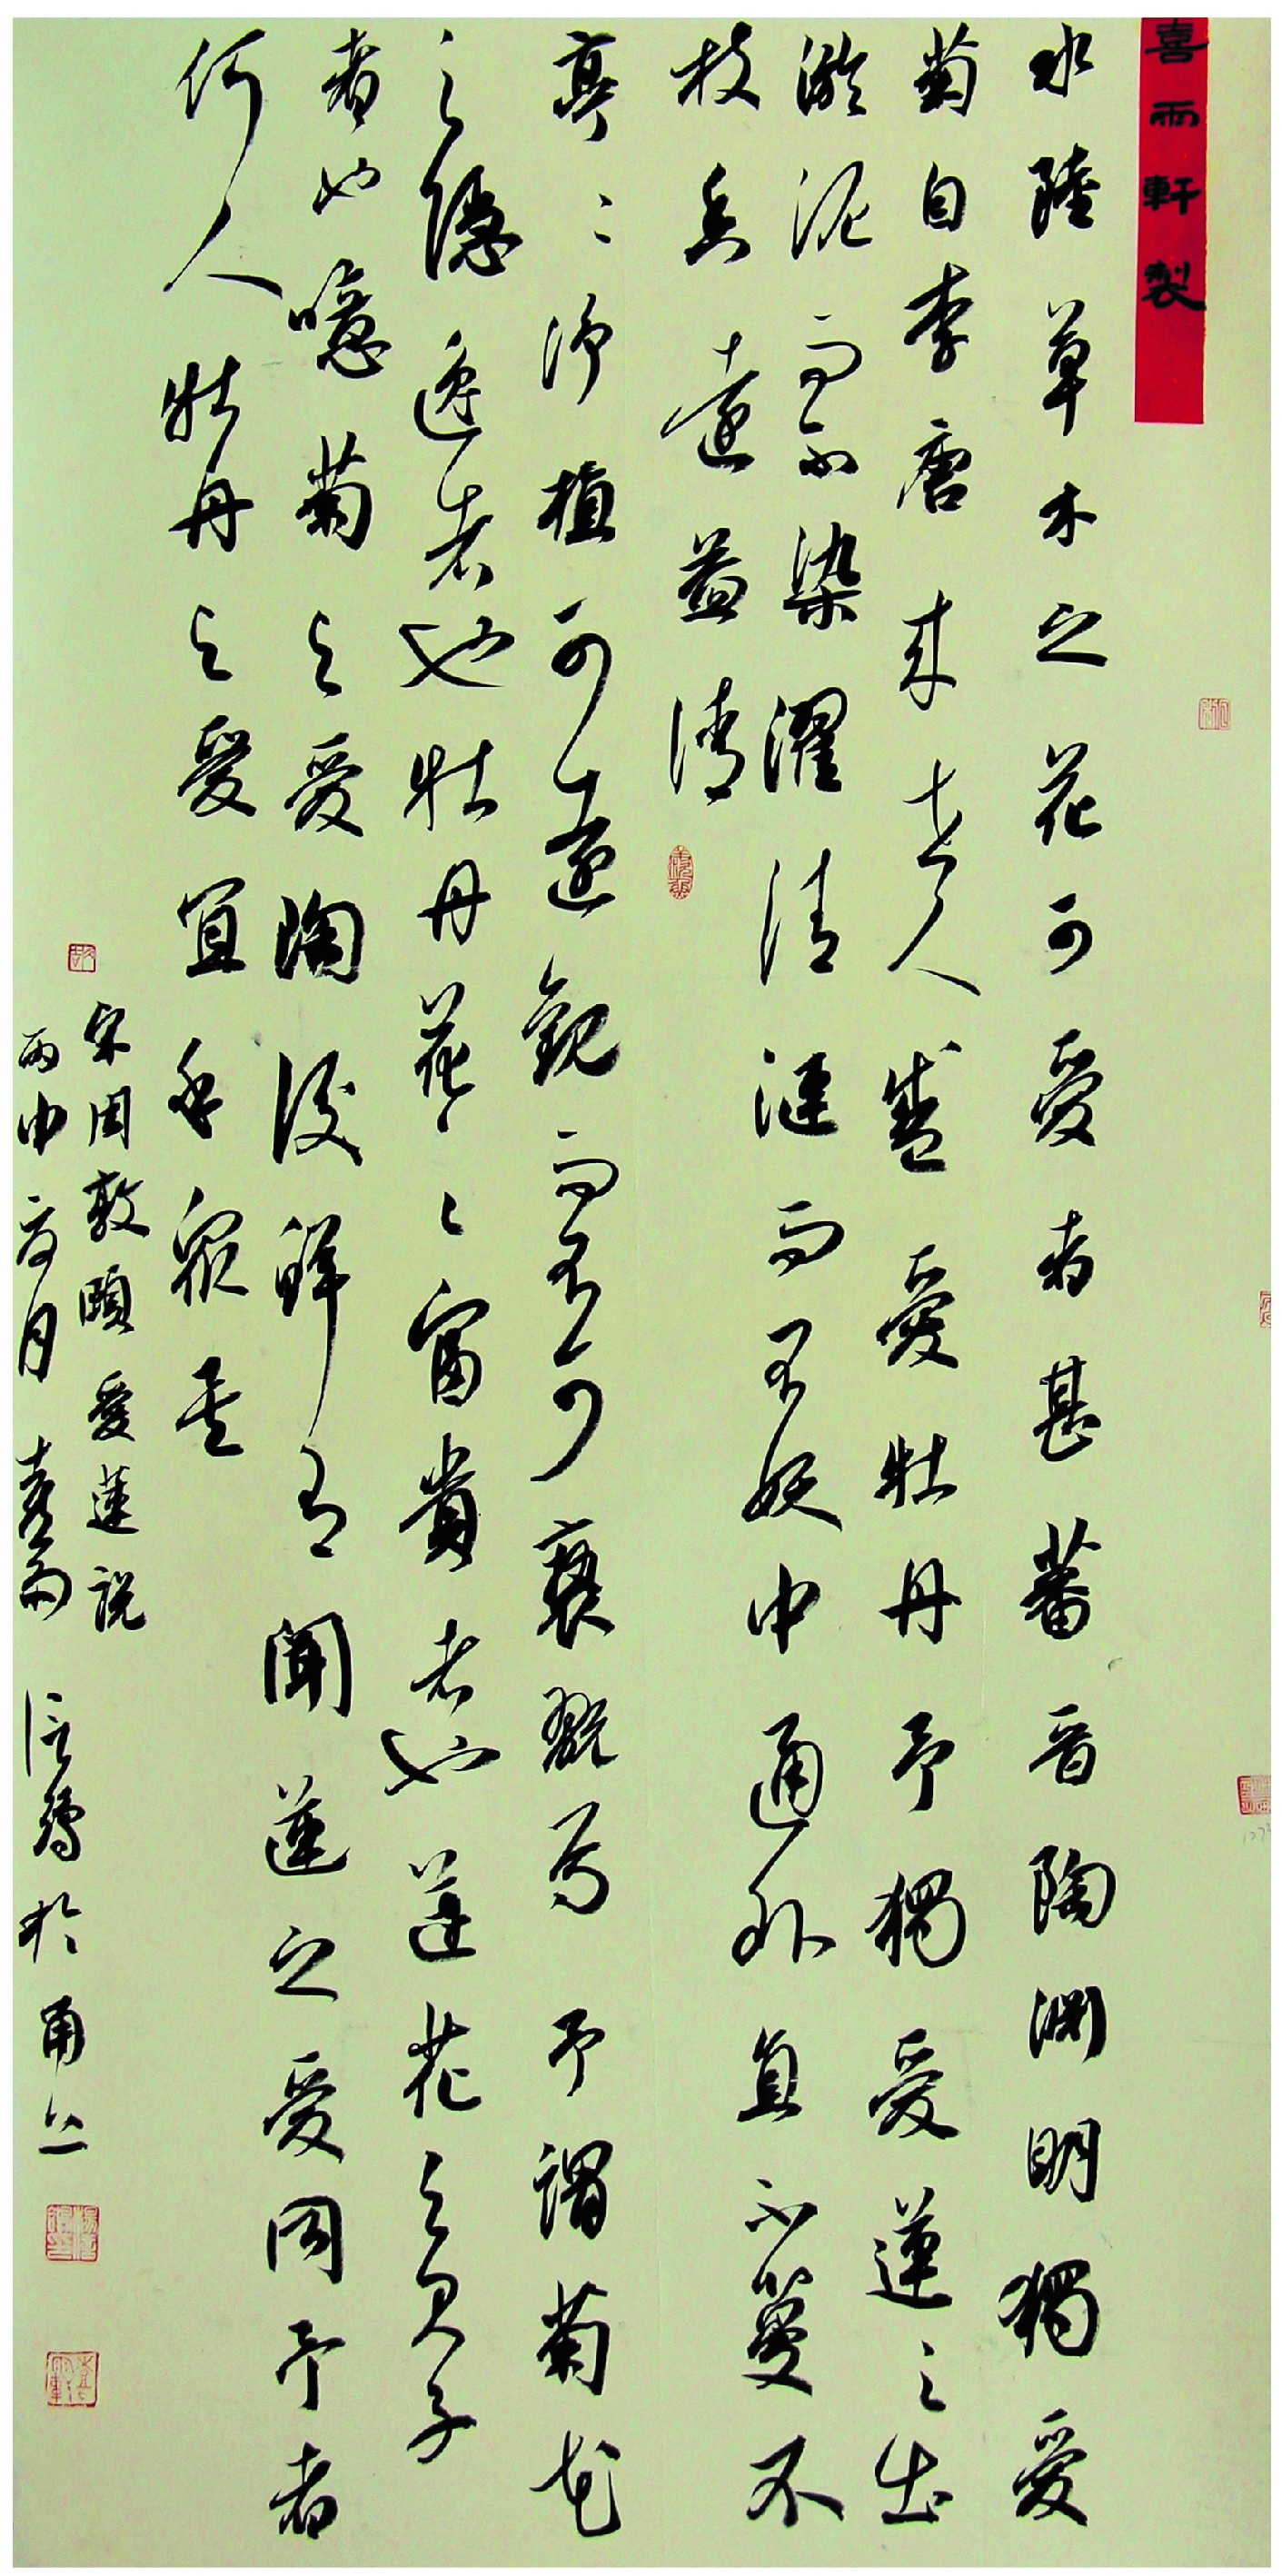 喜雨軒製
水陸草木之花可愛者甚蕃晉陶淵明獨愛
菊自李唐来世人盛愛牡丹予獨愛蓮之出
淤泥而不染濯清漣而不妖中通外直不蔓不
枝香遠益清
亭〻净植可遠觀而不可褻翫焉予謂菊花
之隱逸者也牡丹花之富貴者也蓮花之君子
者也噫菊之愛陶後鮮有聞蓮之愛同予者
何人牡丹之愛宜乎衆矣
宋周敦頤愛蓮説
丙申月喜雨於甬上